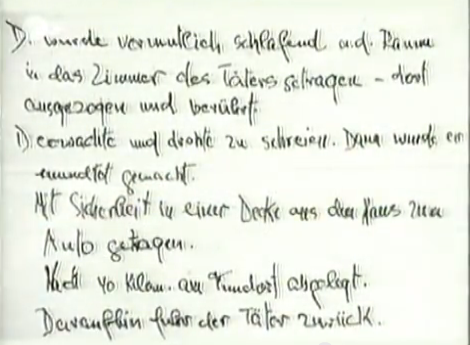 D. wurde vermutlich schlafend a.d. Raum
in das Zimmer des Täters getragen – dort
ausgezogen und berührt.
D. erwachte und drohte zu schreien. Dann wurde er
mundtot gemacht.
Mit Sicherheit in einer Decke aus dem Haus zum
Auto getragen.
Nach 40 Klom. am Fundort abgelegt.
Daraufhin fuhr der Täter zurück.